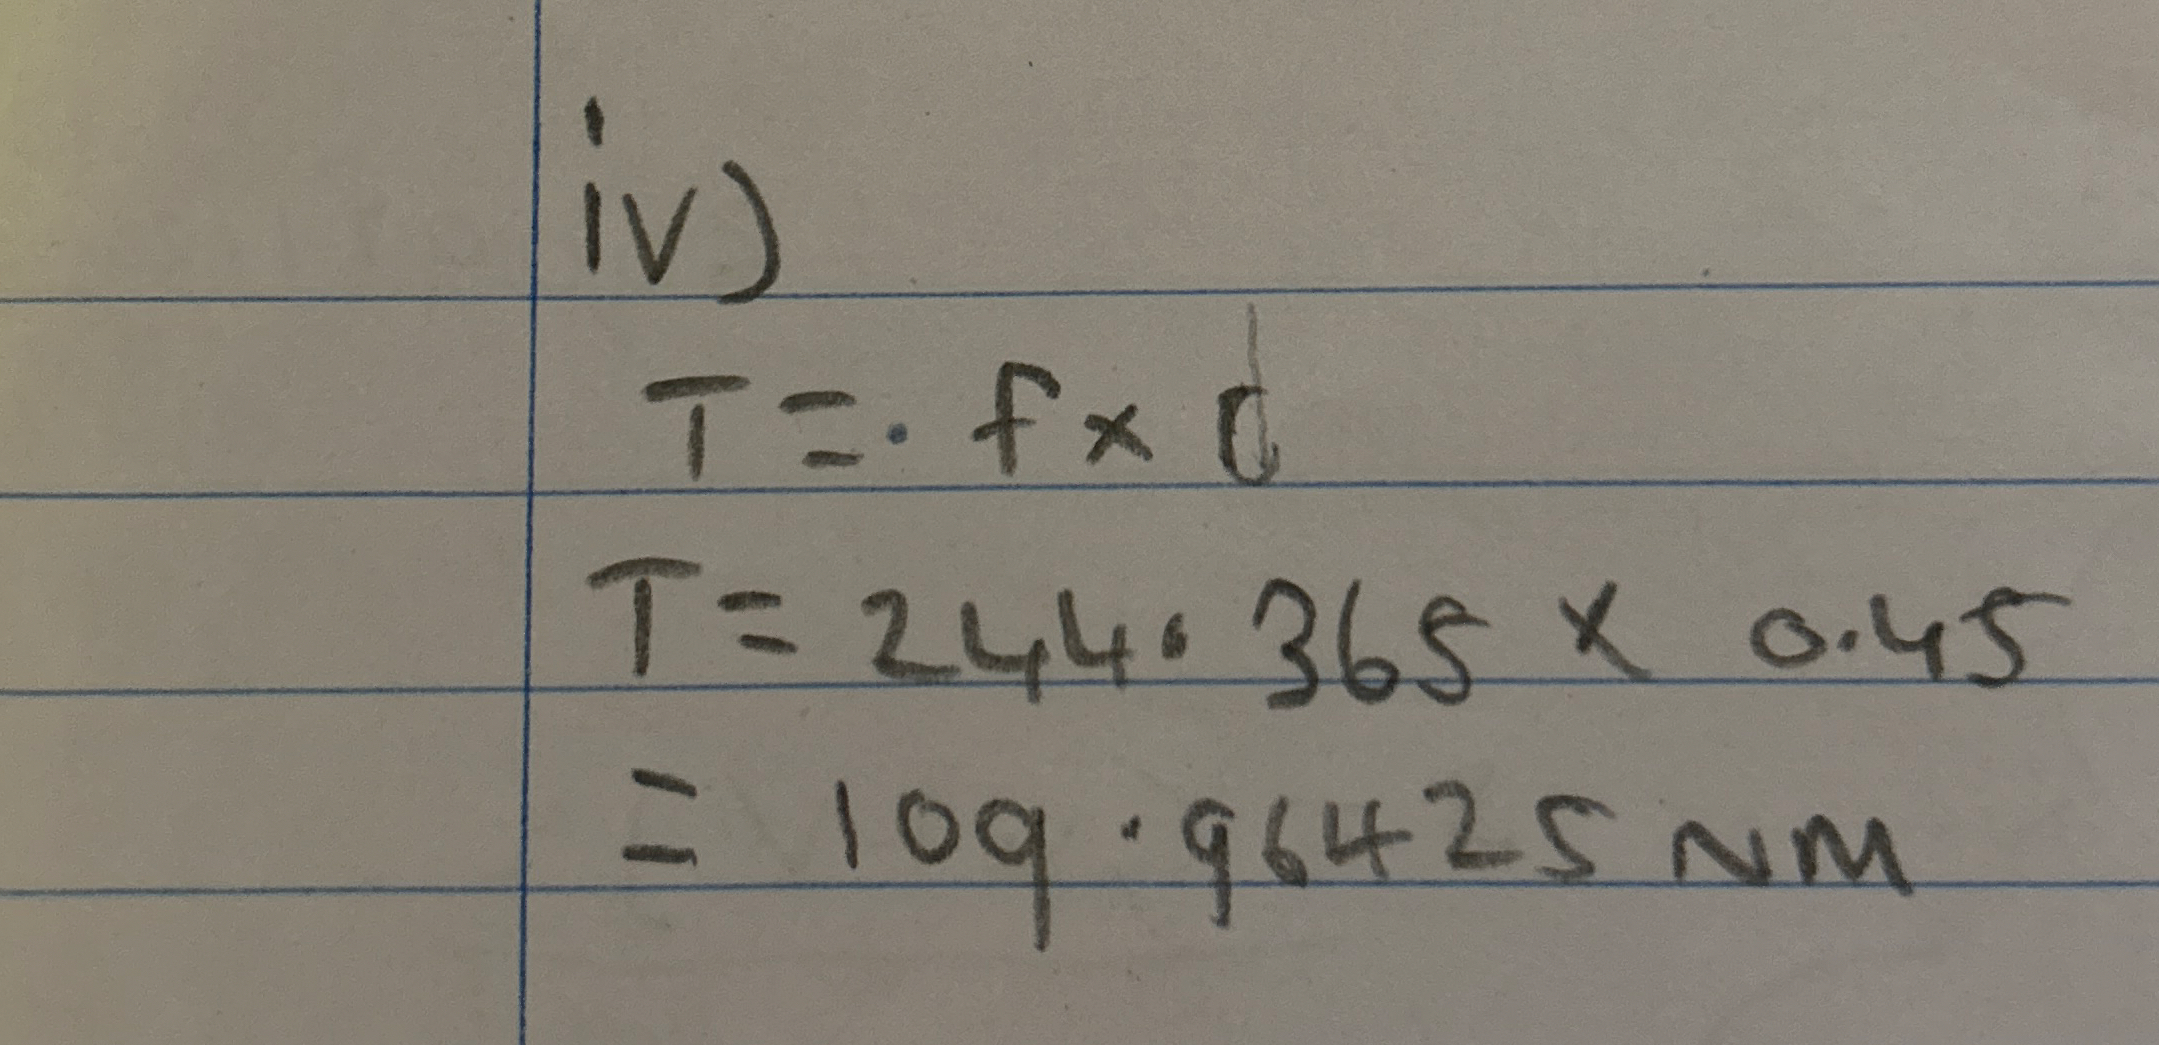 iv)
T = f x d
T = 244.365 x 0.45
= 109.96425 NM